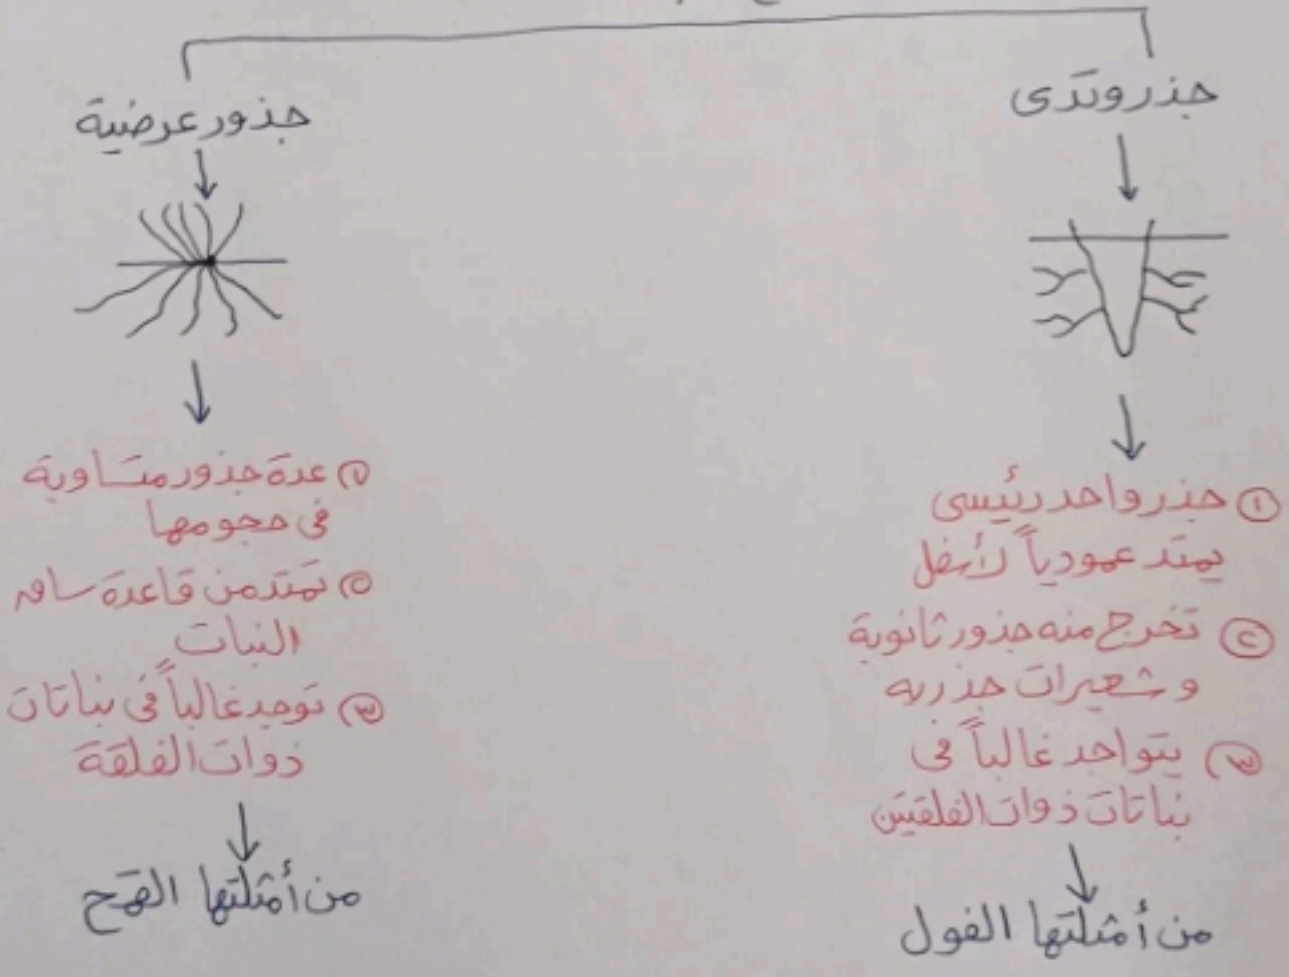 جذر وتدى
جذور عرضية
① جذر واحد رئيسى
يمتد عمودياً لأسفل
② تخرج منه جذور ثانوية
و شعيرات جذريه
③ يتواجد غالباً فى
نباتات ذوات الفلقتين
من أمثلتها الفول
① عدة جذور متساوية
فى حجومها
② تمتد من قاعدة ساق
النبات
③ توجد غالباً فى نباتات
ذوات الفلقة
من أمثلتها القمح